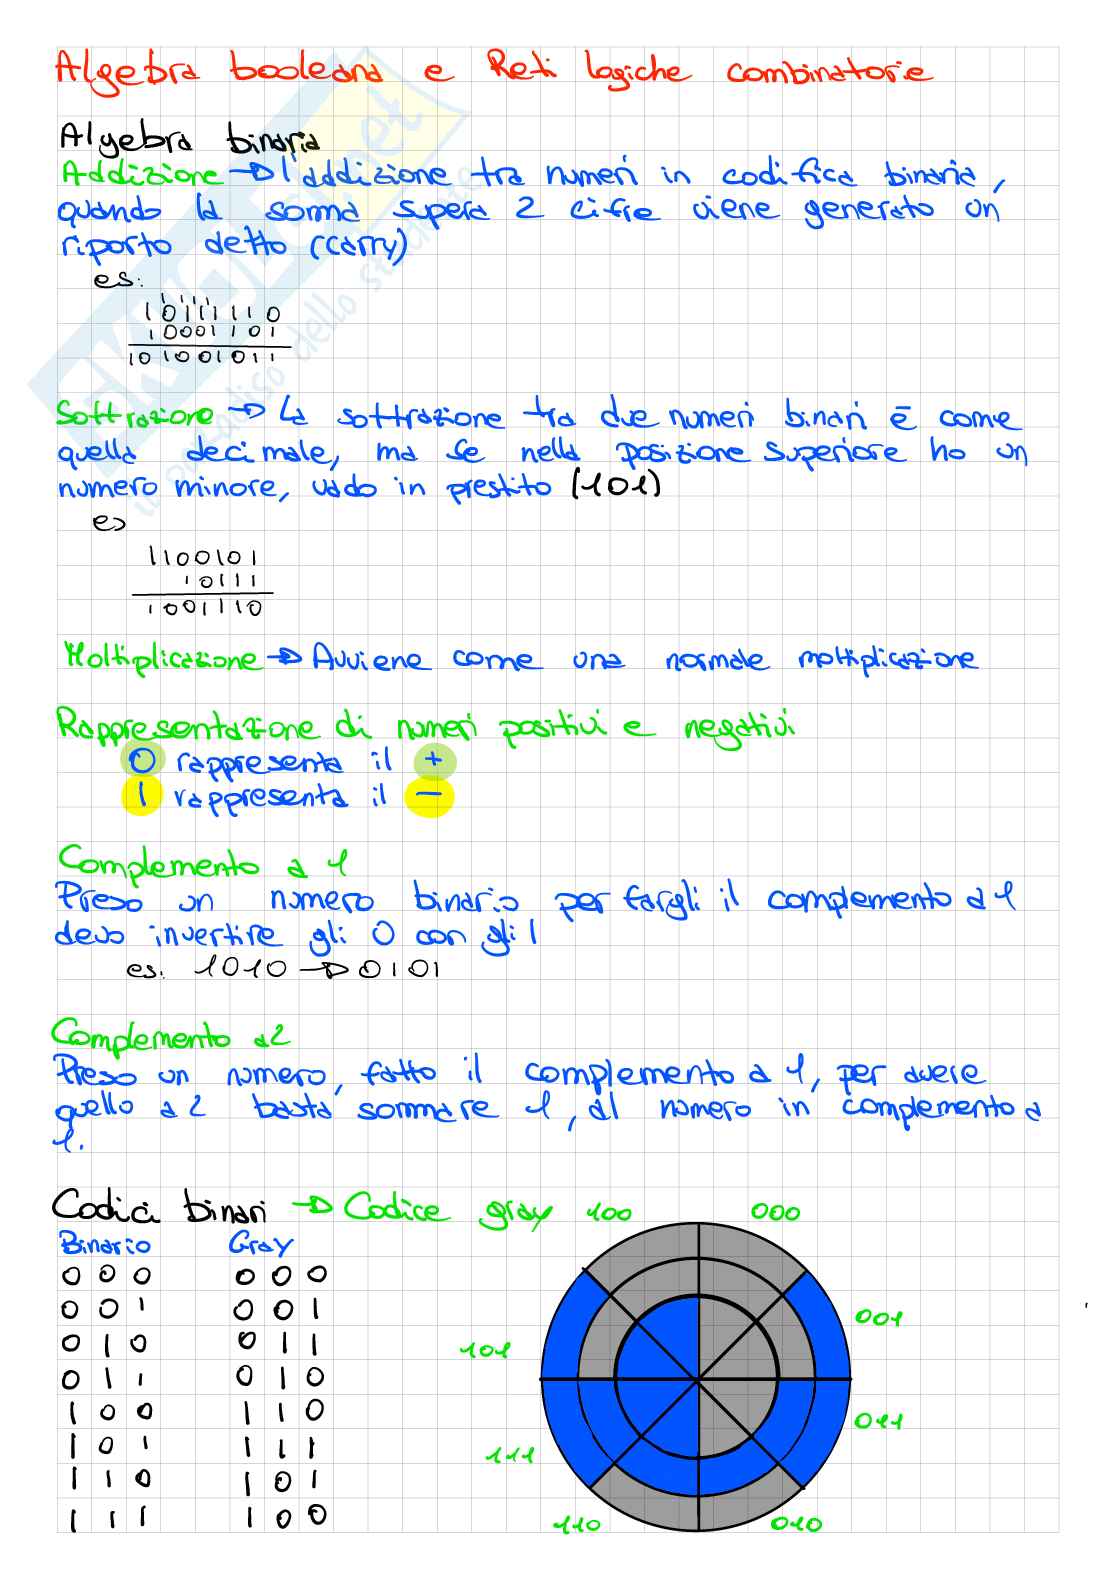 Algebra booleana e Reti logiche combinatorie
Algebra binaria
Addizione → l'addizione tra numeri in codifica binaria,
quando la somma supera 2 cifre viene generato un
riporto detto (carry)
es:
1 1 1 1
10111110
10001101
101001011
Sottrazione → La sottrazione tra due numeri binari è come
quella decimale, ma se nella posizione superiore ho un
numero minore, vado in prestito (101)
es
1100101
10111
1001110
Moltiplicazione → Avviene come una normale moltiplicazione
Rappresentazione di numeri positivi e negativi
0 rappresenta il +
1 rappresenta il −
Complemento a 1
Preso un numero binario per fargli il complemento a 1
devo invertire gli 0 con gli 1
es: 1010 → 0101
Complemento a2
Preso un numero, fatto il complemento a 1, per avere
quello a 2 basta sommare 1, al numero in complemento a
1.
Codici binari → Codice gray
Binario Gray
0 0 0 0 0 0
0 0 1 0 0 1
0 1 0 0 1 1
0 1 1 0 1 0
1 0 0 1 1 0
1 0 1 1 1 1
1 1 0 1 0 1
1 1 1 1 0 0
100 000
001
101
011
111
110 010